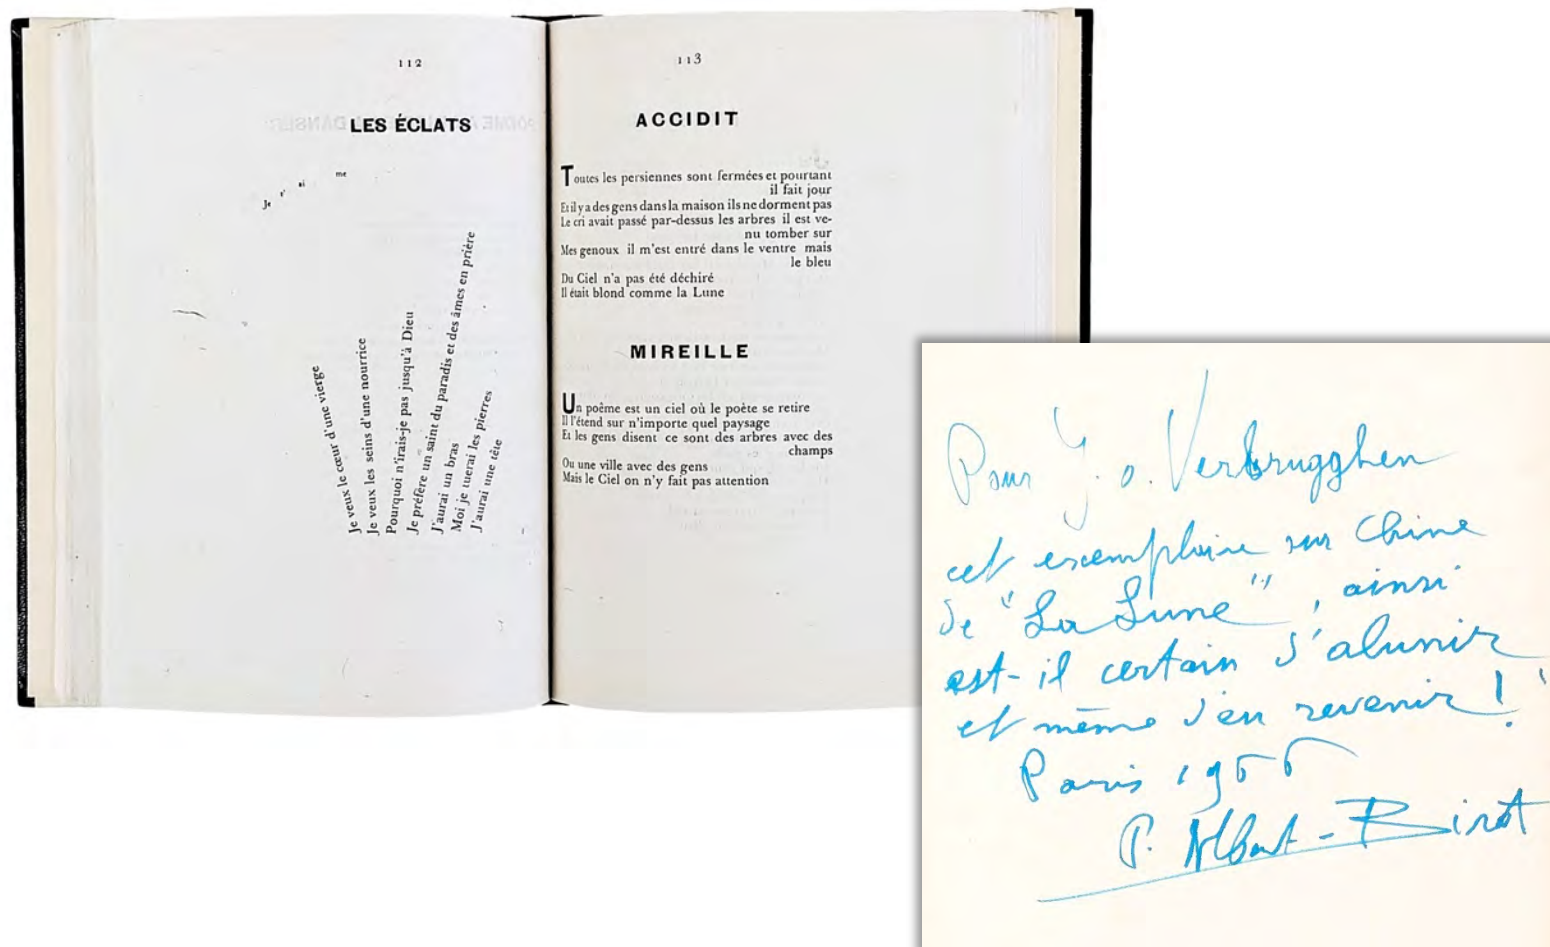 112
LES ÉCLATS
Je t' ai me
Je veux le cœur d'une vierge
Je veux les seins d'une nourrice
Pourquoi n'irais-je pas jusqu'à Dieu
Je préfère un saint du paradis et des âmes en prière
J'aurai un bras
Moi je tuerai les pierres
J'aurai une tête
113
ACCIDIT
Toutes les persiennes sont fermées et pourtant
il fait jour
Et il y a des gens dans la maison ils ne dorment pas
Le cri avait passé par-dessus les arbres il est ve-
nu tomber sur
Mes genoux il m'est entré dans le ventre mais
le bleu
Du Ciel n'a pas été déchiré
Il était blond comme la Lune
MIREILLE
Un poème est un ciel où le poète se retire
Il l'étend sur n'importe quel paysage
Et les gens disent ce sont des arbres avec des
champs
Ou une ville avec des gens
Mais le Ciel on n'y fait pas attention
Pour J. o. Verbrugghen
cet exemplaire sur Chine
de "La Lune", ainsi
est-il certain d'alunir
et même d'en revenir !
Paris 1966
P. Albert-Birot